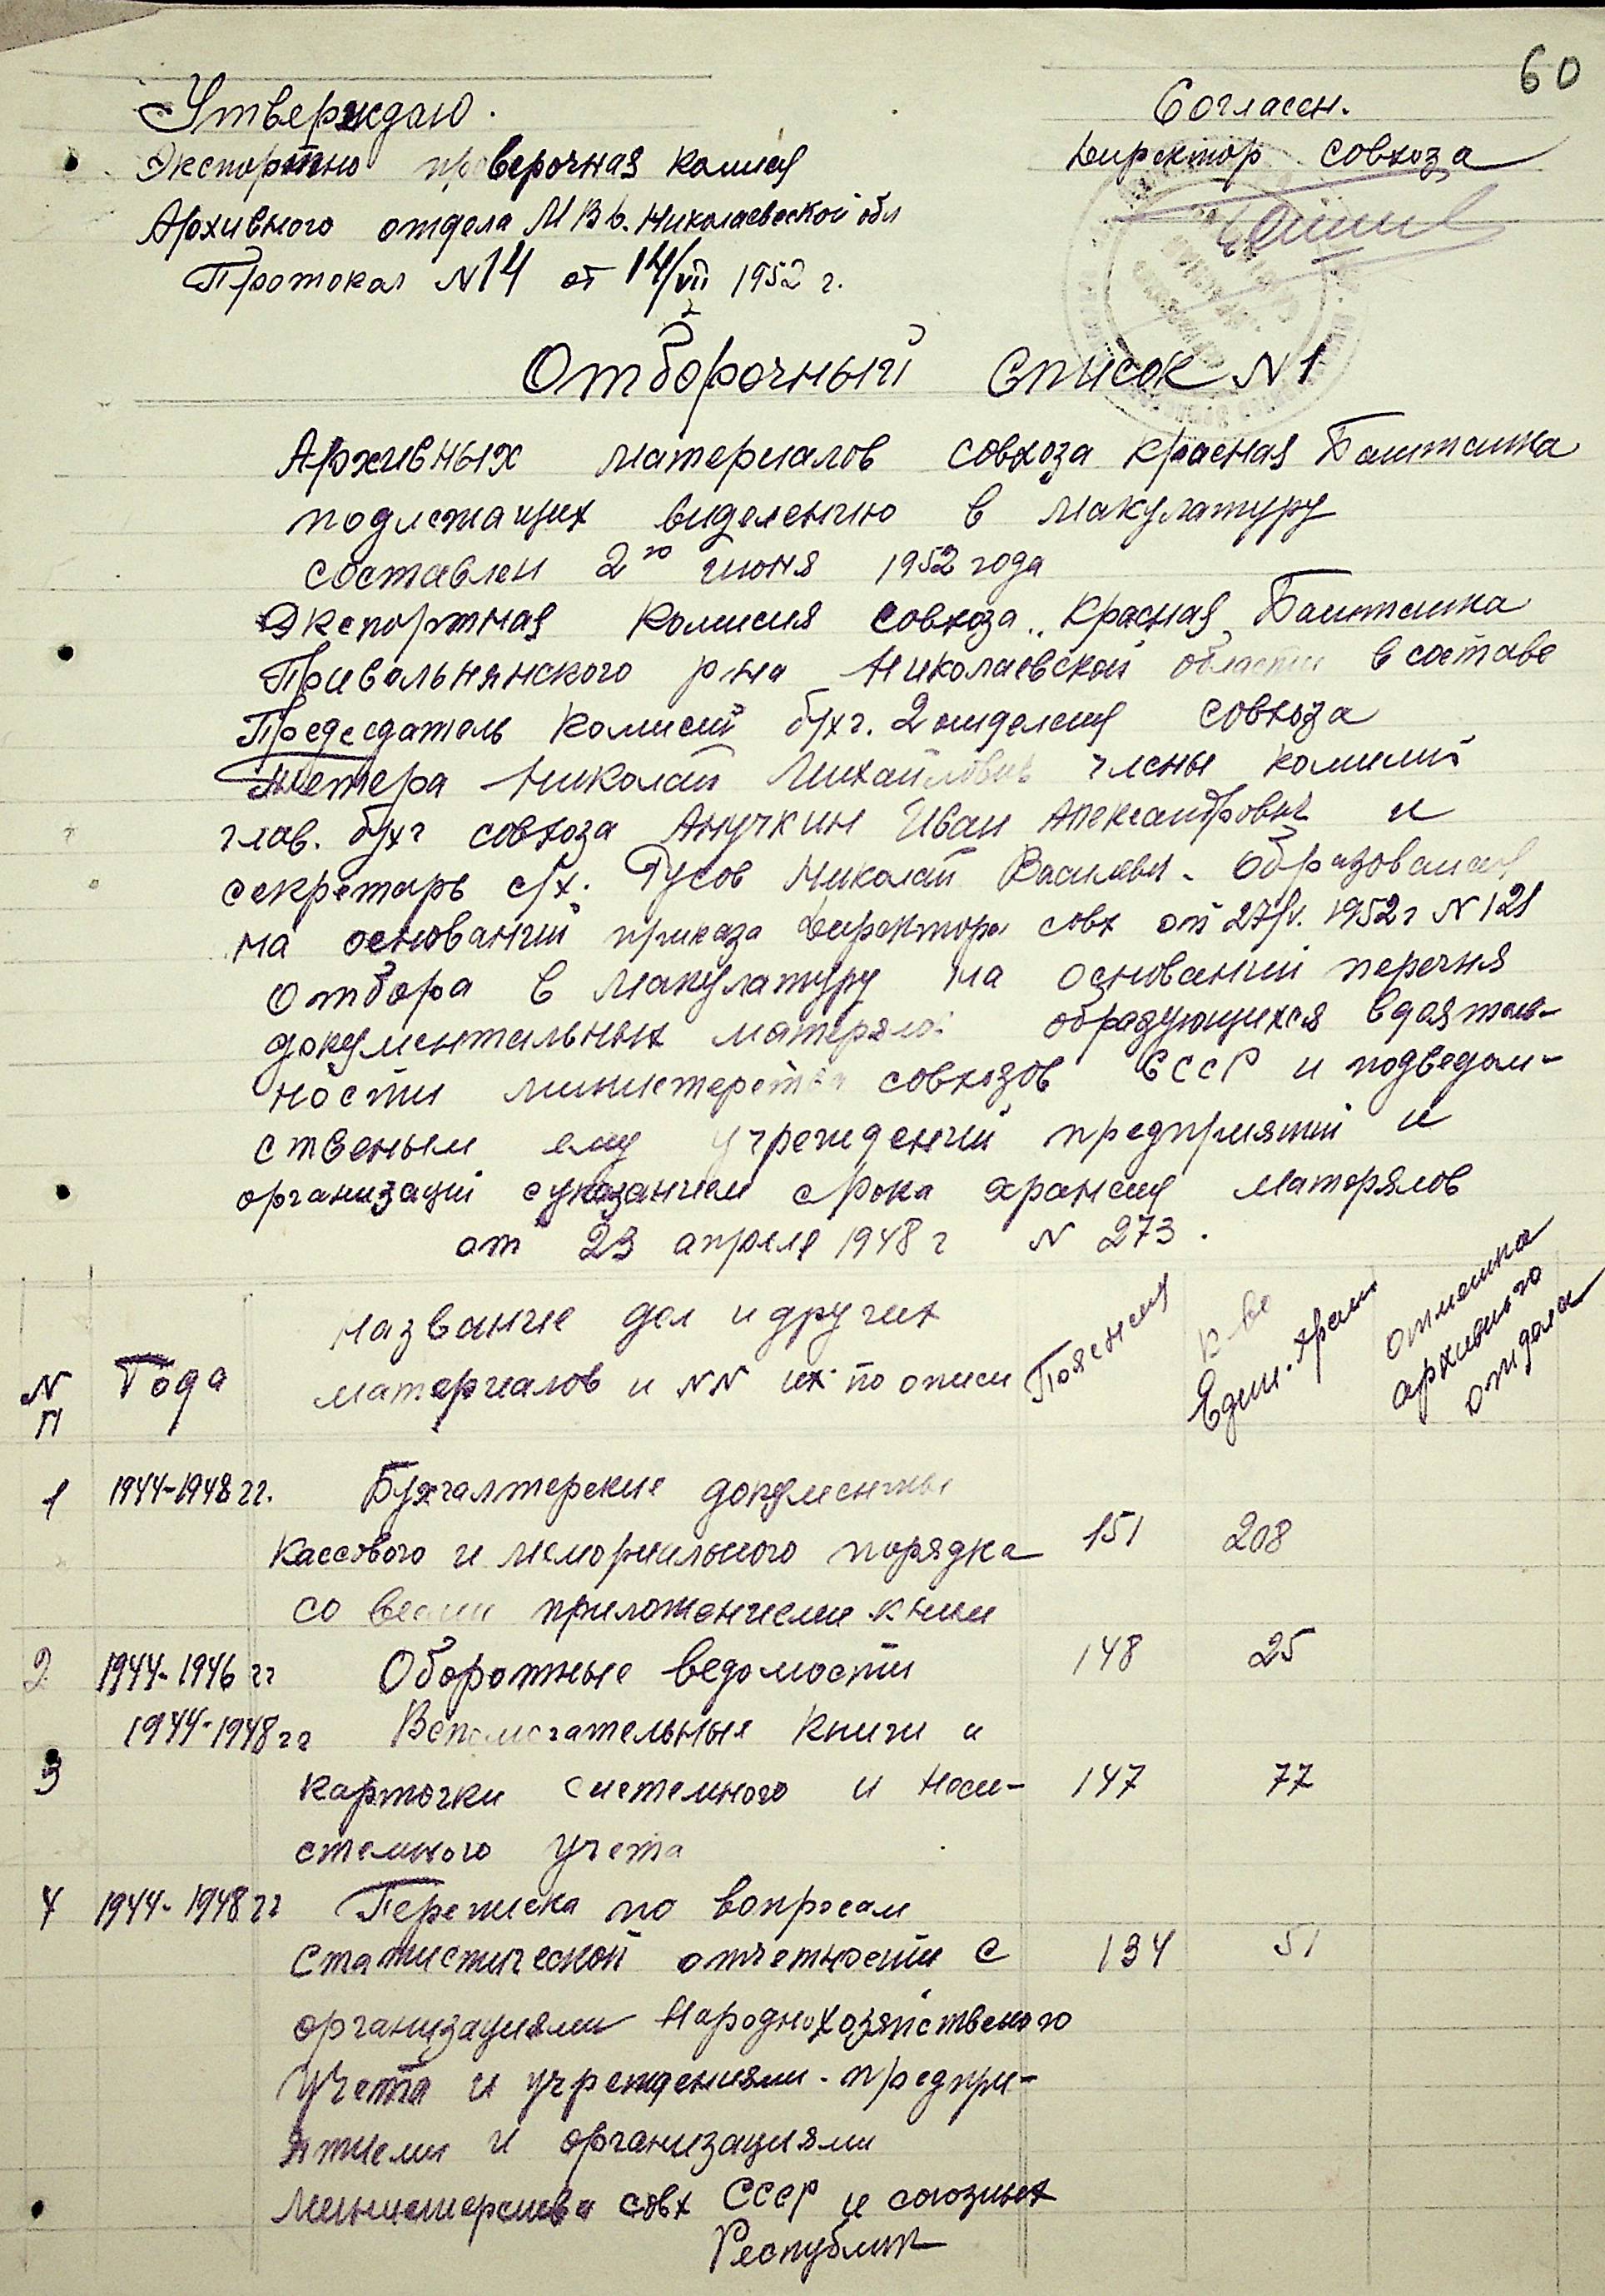 60
Утверждаю.
Согласен.
Экспортно проверочная комисия
Директор совхоза
Архивного отдела МВД. Николаевской обл
Протокол N14 от 14/VII 1952 г.
Отборочный список N1
Архивных материалов совхоза Красная Баштанка
подлежащих виделению в макулатуру
составлен 2го июня 1952 года
Экспортная комисия совхоза „Красная Баштанка
Привольнянского р-на Николаевской области в составе
Председатель комисий бухг. 2 отделения совхоза
Николай Михайлович члены комисий
глав. бухг совхоза Анучкин Иван Александрович и
секретарь с/х. Гусов Николай Василевич. Образования
на оснований приказа Директора совх от 27/V. 1952 г N 121
отбора в макулатуру на оснований перечня
документальных материялов образующихся в деятель-
ности министерства совхозов СССР и подведом-
ственым ему учреждений предприятий и
организаций с указанием срока хранения материялов
от 23 апреля 1948 г N 273.
N П Года Название дел и других материалов и NN их по описи Пояснения К-во Един. хран Отметка архивного отдела
1 1944-1948 гг. Бухгалтерские документы
кассового и мемориального порядка 151 208
со всеми приложениеми к ним
2 1944-1946 гг Оборотные ведомости 148 25
1944-1948 гг Вспомогательные книги и
3 карточки системного и неси- 147 77
стемного учета
4 1944-1948 гг Переписка по вопросам
статистической отчетности с 134 51
организациями Народнохозяйственого
учета и учреждениями-предпри-
ятиеми и организациями
Министерства совх СССР и союзных
Республик